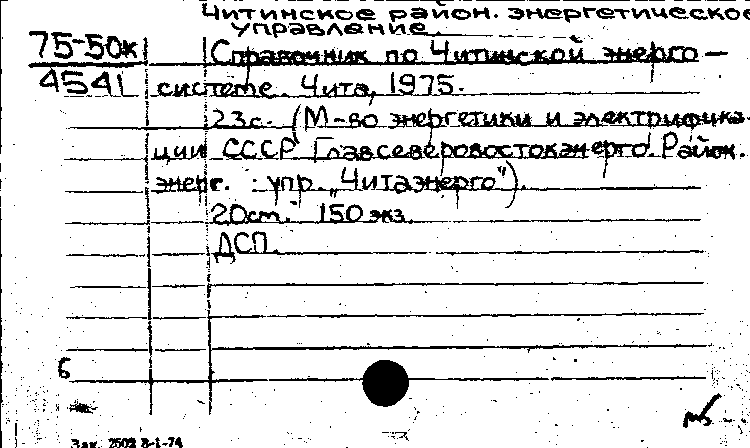 Читинское район. энергетическое
управление.
75-50к Справочник по Читинской энерго-
4541 системе. Чита, 1975.
23с. (М-во энергетики и электрифика-
ции СССР Главсеверовостокэнерго. Район.
энерг. упр. „Читаэнерго").
20см. 150 экз.
ДСП.
6
Зак. 2502 8-1-74